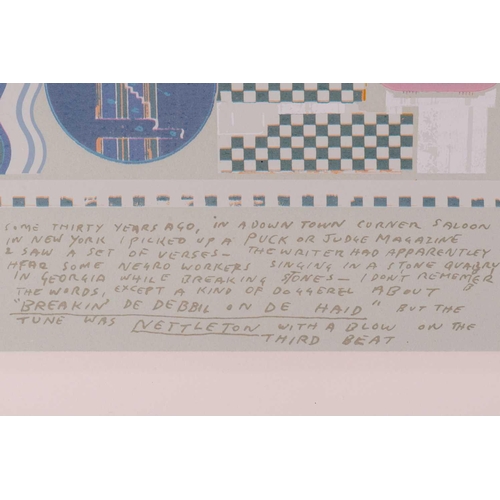 SOME THIRTY YEARS AGO, IN A DOWN TOWN CORNER SALOON
IN NEW YORK I PICKED UP A PUCK OR JUDGE MAGAZINE
& SAW A SET OF VERSES— THE WRITER HAD APPARENTLY
HEAR SOME NEGRO WORKERS SINGING IN A STONE QUARRY
IN GEORGIA WHILE BREAKING STONES— I DONT REMEMBER
THE WORDS, EXCEPT A KIND OF DOGGEREL ABOUT
"BREAKIN' DE DEBBIL ON DE HAID" BUT THE
TUNE WAS NETTLETON WITH A BLOW ON THE
THIRD BEAT.